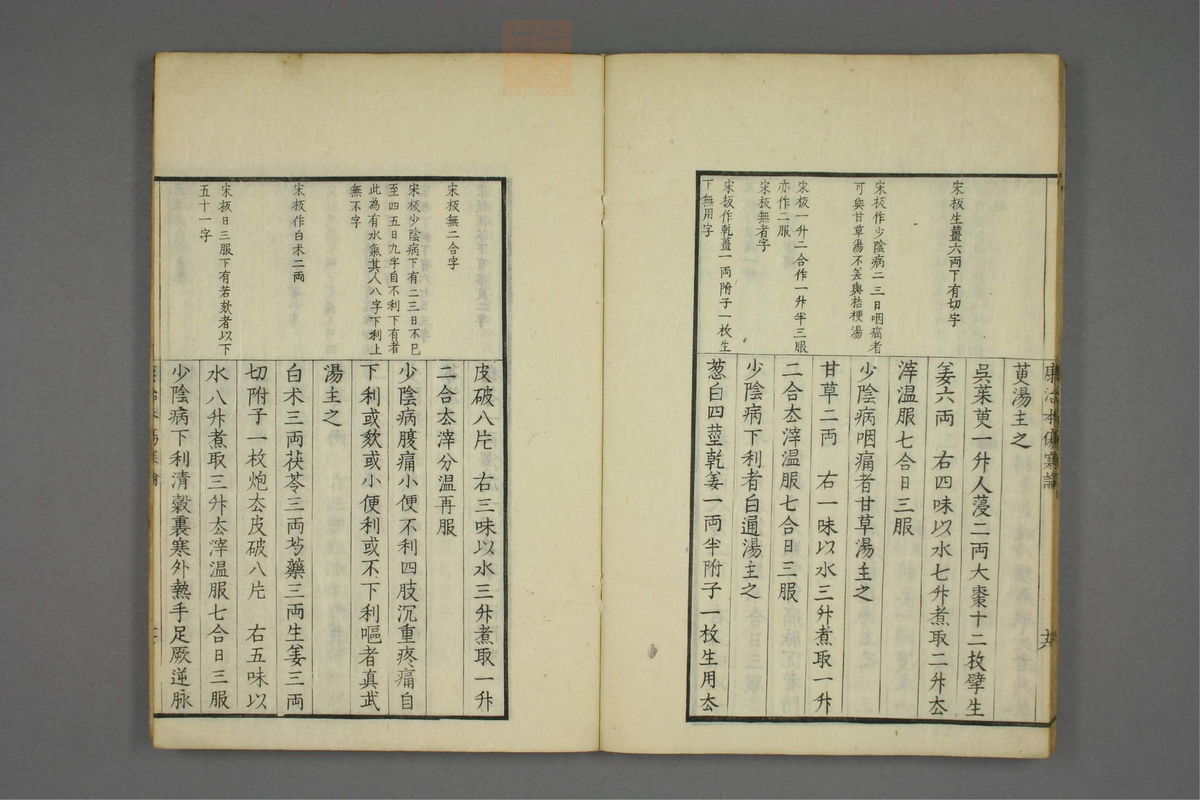 康治本傷寒論
萸湯主之
吳茱萸一升人蓡二兩大棗十二枚擘生
姜六兩 右四味以水七升煮取二升去
滓温服七合日三服
少陰病咽痛者甘草湯主之
甘草二兩 右一味以水三升煮取一升
二合去滓温服七合日三服
少陰病下利者白通湯主之
葱白四莖乾姜一兩半附子一枚生用去
宋板生薑六兩下有切字
宋板作少陰病二三日咽痛者
可與甘草湯不差與桔梗湯
宋板一升二合作一升半三服
亦作二服
宋板無者字
宋板作乾薑一兩附子一枚生
下無用字
皮破八片 右三味以水三升煮取一升
二合去滓分温再服
少陰病腹痛小便不利四肢沉重疼痛自
下利或欬或小便利或不下利嘔者真武
湯主之
白朮三兩茯苓三兩芍藥三兩生姜三兩
切附子一枚炮去皮破八片 右五味以
水八升煮取三升去滓温服七合日三服
少陰病下利清穀裏寒外熱手足厥逆脉
宋板無二合字
宋板少陰病下有二三日不已
至四五日九字自不利下有者
此為有水氣其人八字下利上
無不字
宋板作白朮二兩
宋板日三服下有若欬者以下
五十一字